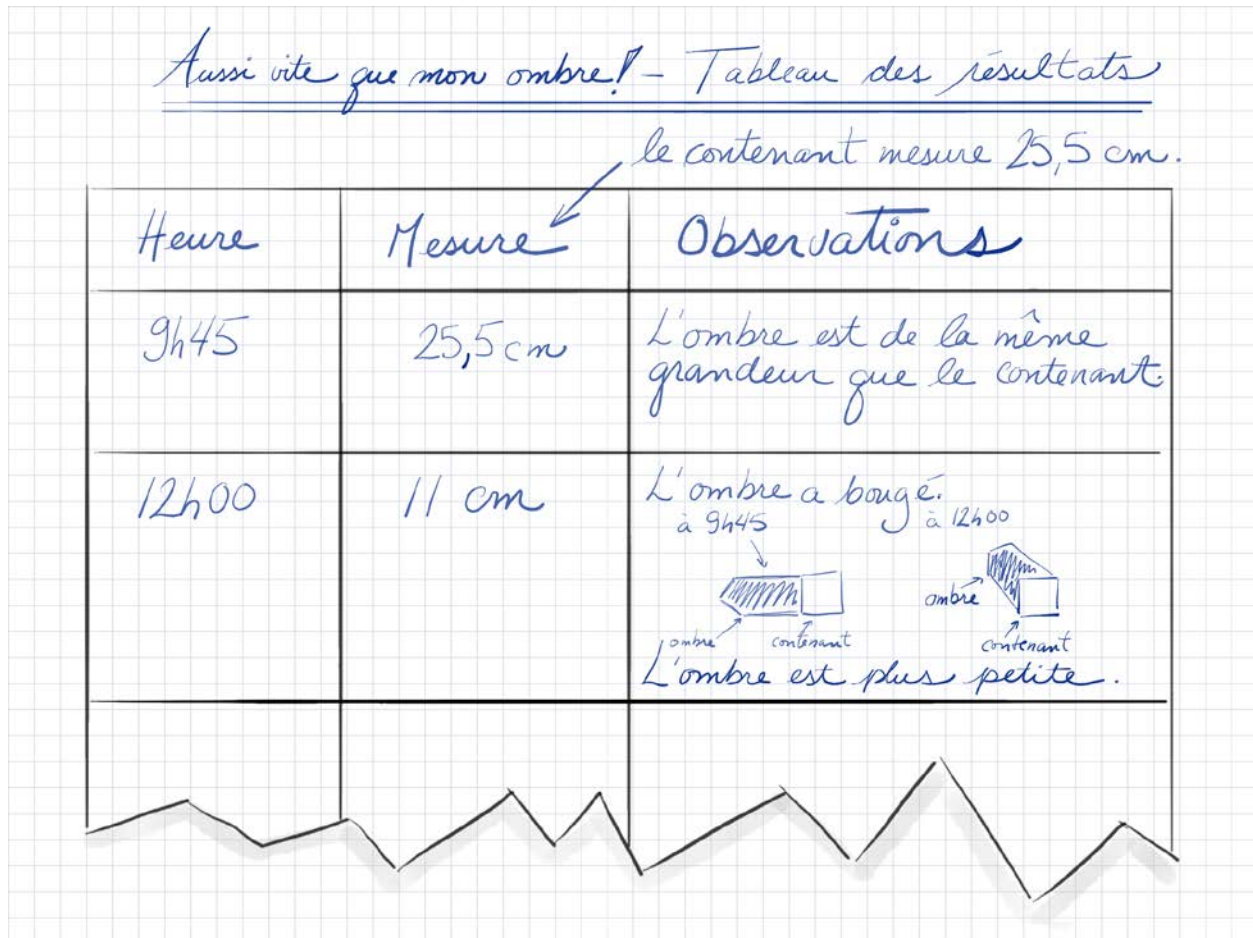 Aussi vite que mon ombre! – Tableau des résultats
le contenant mesure 25,5 cm.
Heure
Mesure
Observations
9h45
25,5 cm
L'ombre est de la même
grandeur que le contenant.
12h00
11 cm
L'ombre a bougé.
à 9h45
à 12h00
ombre
ombre
contenant
contenant
L'ombre est plus petite.